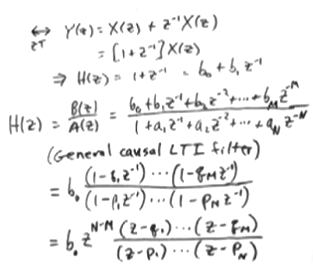 ⟷ Y(z) = X(z) + z⁻¹X(z)
ZT = [1+z⁻¹] X(z)
⇒ H(z) = 1+z⁻¹ = b₀ + b₁z⁻¹
H(z) = B(z)/A(z) = (b₀+b₁z⁻¹+b₂z⁻²+⋯+b_M z^-M)/(1+a₁z⁻¹+a₂z⁻²+⋯+a_N z^-N)
(General causal LTI filter)
= b₀ (1-q₁z⁻¹)⋯(1-q_M z⁻¹)/(1-p₁z⁻¹)⋯(1-p_N z⁻¹)
= b₀ z^N-M (z-q₁)⋯(z-q_M)/(z-p₁)⋯(z-p_N)